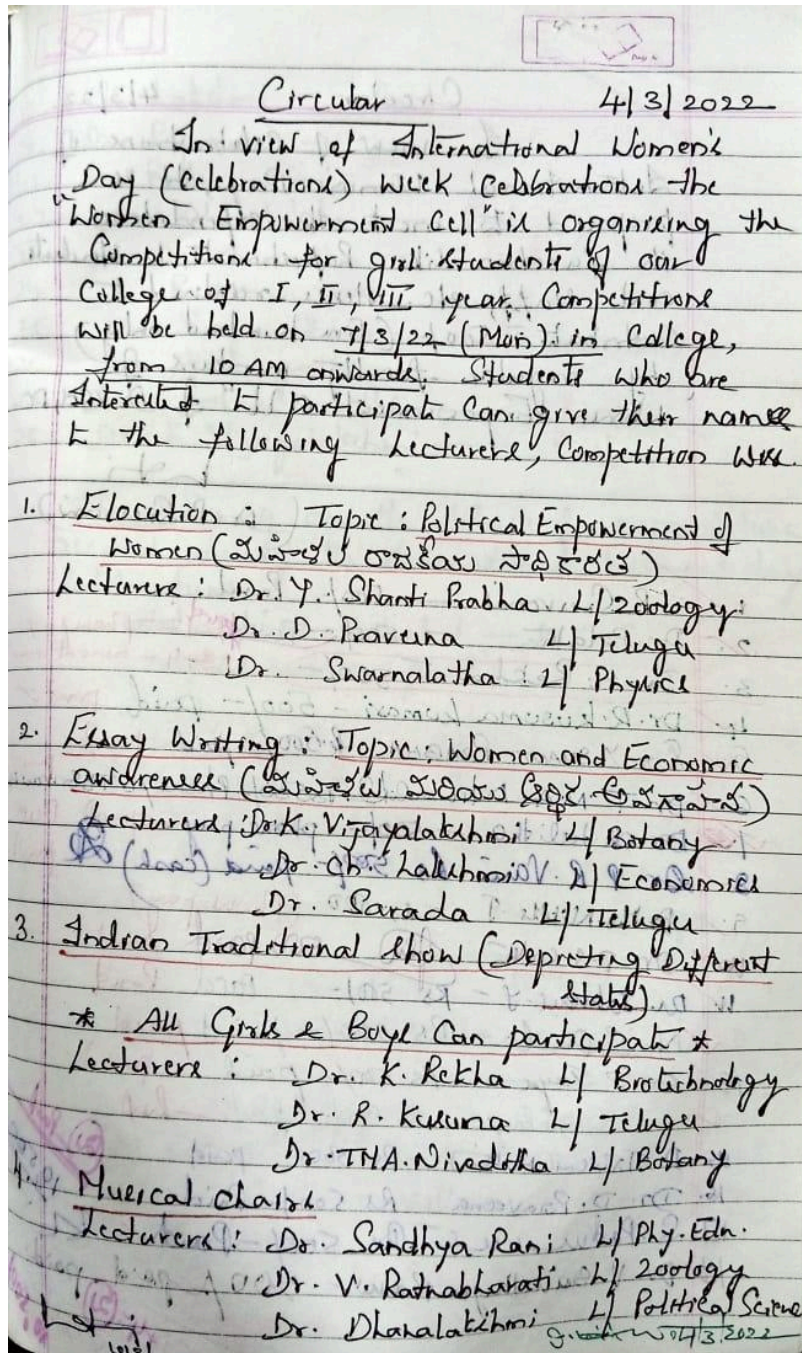 Circular 4/3/2022
In view of International Women's
Day (Celebrations) Week Celebrations the
"Women Empowerment Cell" is organising the
Competitions for girl students of our
College of I, II, III year. Competitions
will be held on 7/3/22 (Mon) in College,
from 10 AM onwards. Students who are
Interested to participate Can give their names
to the following Lecturers, Competition wise.
1. Elocution : Topic : Political Empowerment of
Women (మహిళల రాజకీయ సాధికారత)
Lecturers : Dr. Y. Shanti Prabha L/ Zoology
Dr. D. Praveena L/ Telugu
Dr. Swarnalatha L/ Physics
2. Essay Writing : Topic : Women and Economic
awareness (మహిళలు మరియు ఆర్థిక అవగాహన)
Lecturers : Dr. K. Vijayalakshmi L/ Botany
Dr. Ch. Lakshmi L/ Economics
Dr. Sarada L/ Telugu
3. Indian Traditional Show (Depicting Different
States)
* All Girls & Boys Can participate *
Lecturers : Dr. K. Rekha L/ Biotechnology
Dr. R. Kusuma L/ Telugu
Dr. TNA. Niveditha L/ Botany
4. Musical Chairs
Lecturers : Dr. Sandhya Rani L/ Phy. Edn.
Dr. V. Ratnabharati L/ Zoology
Dr. Dhanalakshmi L/ Political Science
04/3/2022